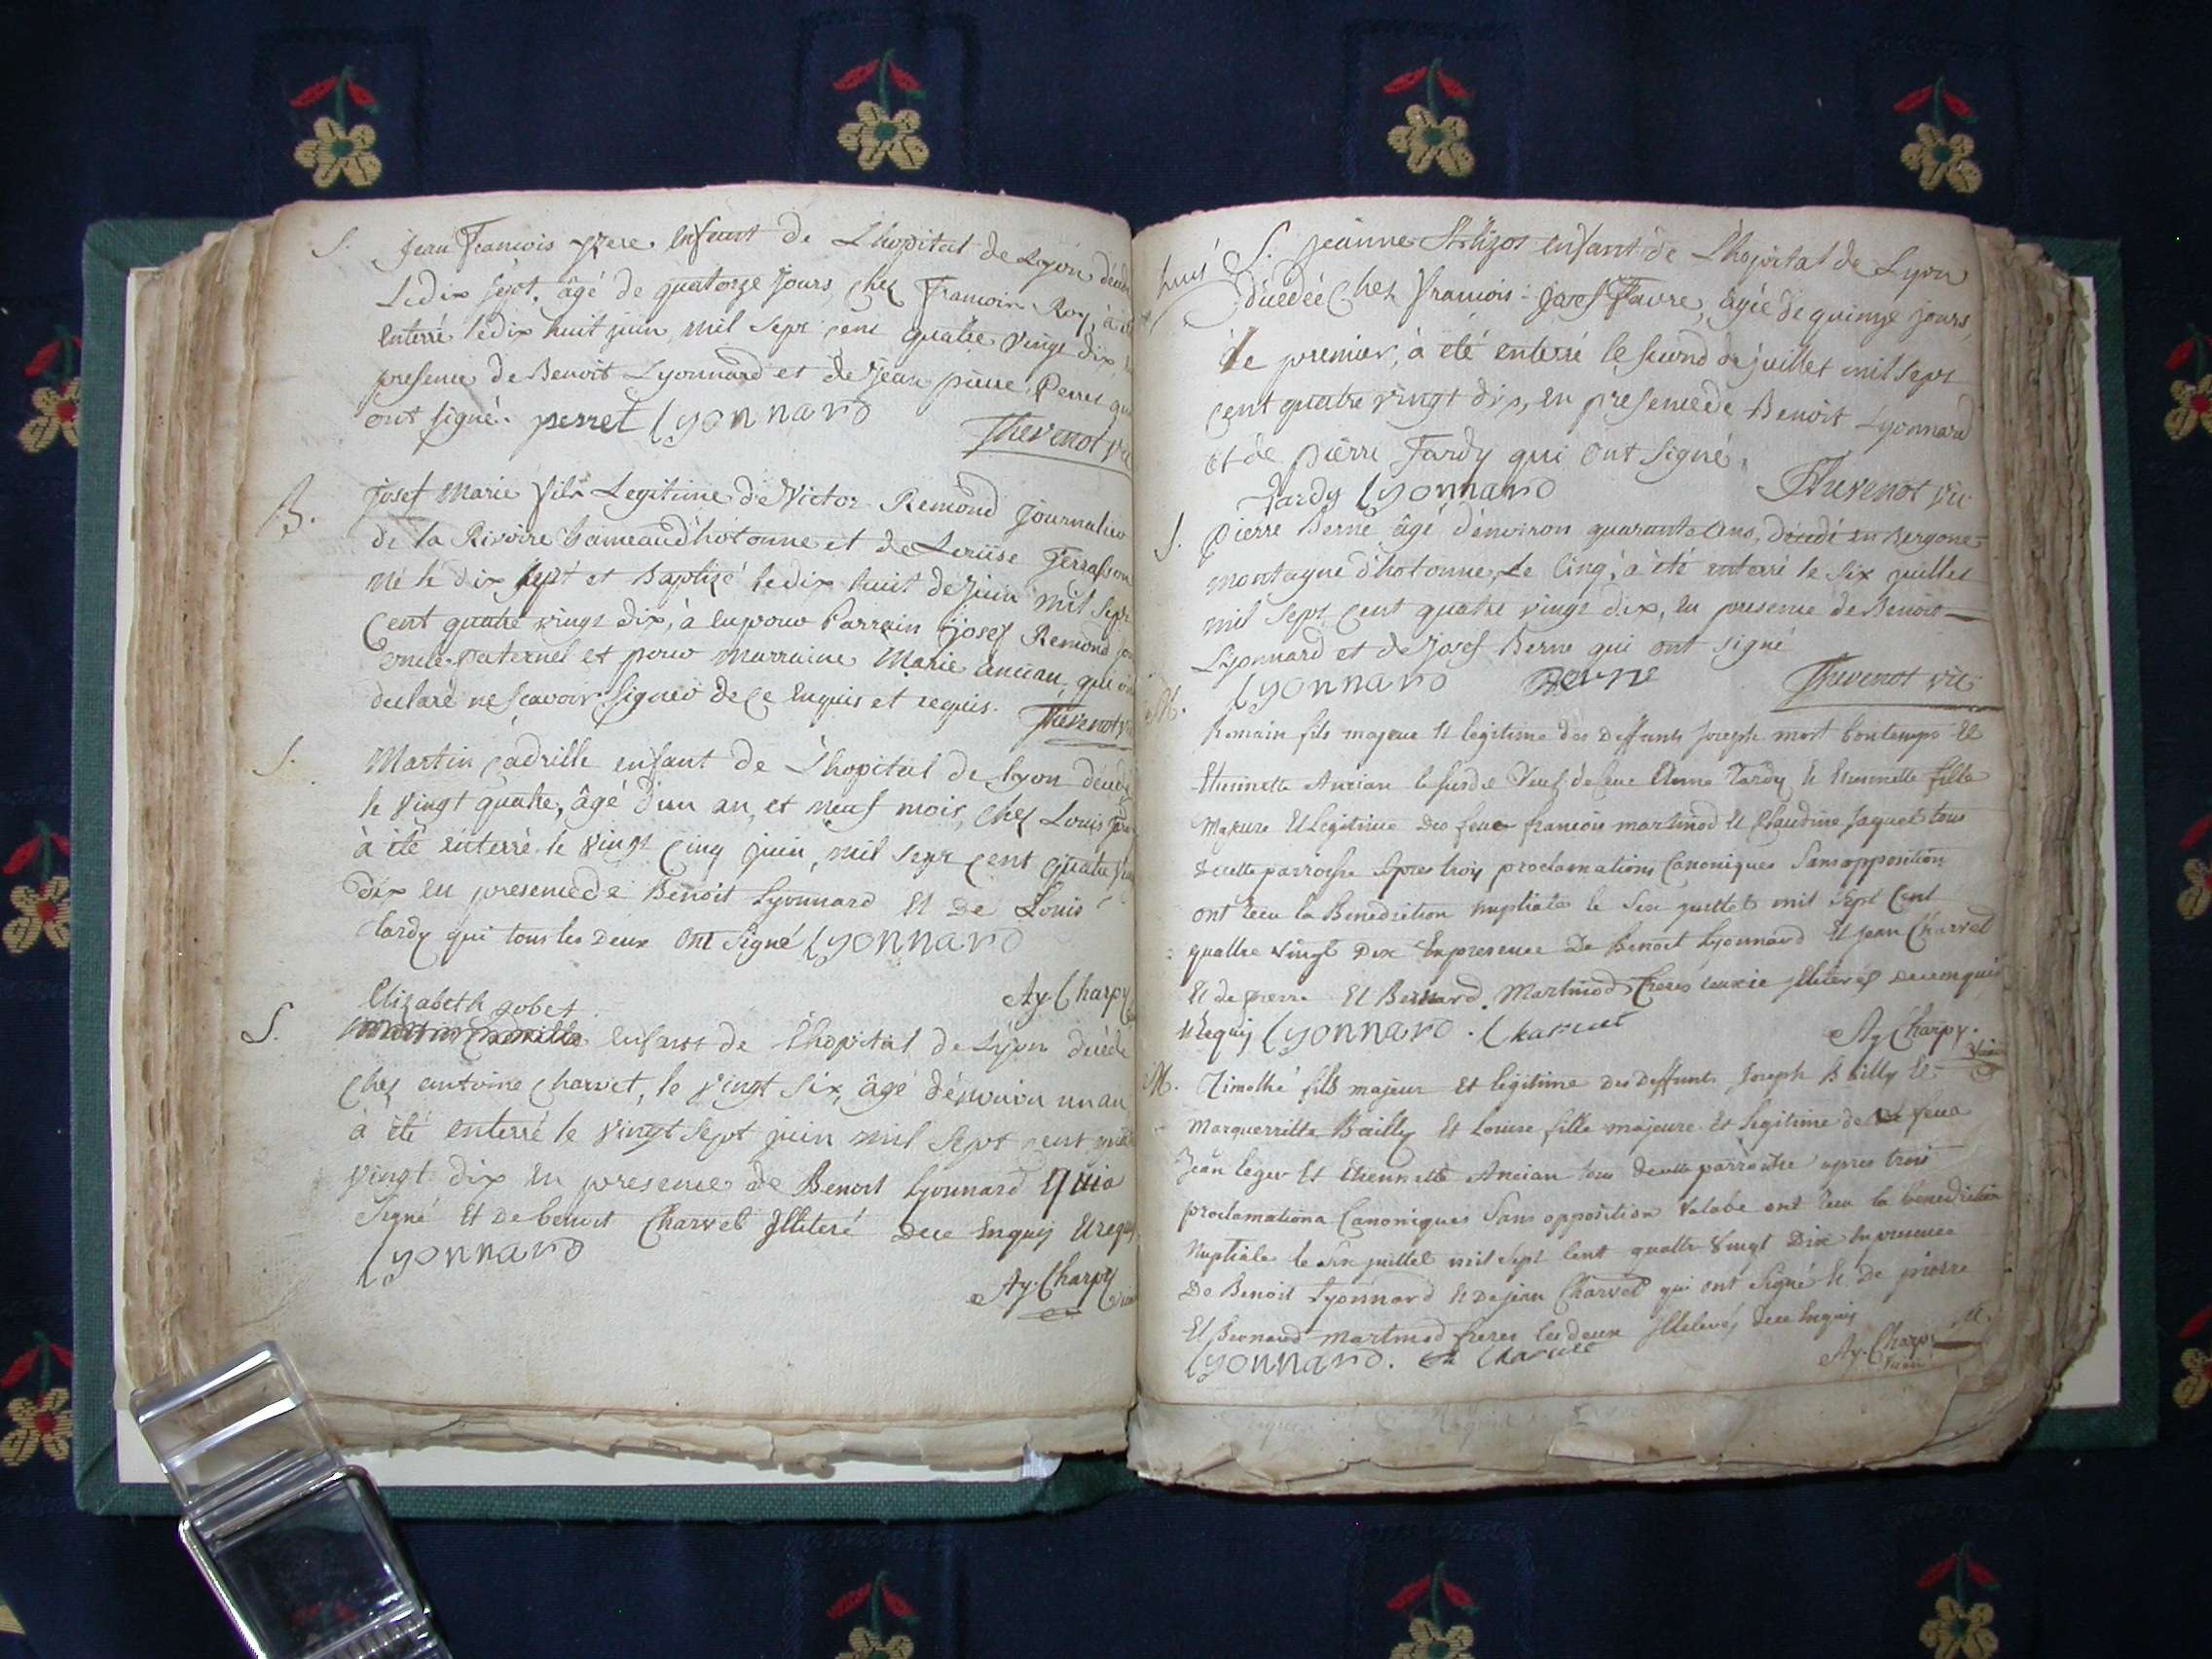 S. Jean François enfant de L'hopital de Lyon décédé
Le dix sept, âgé de quatorze jours, chez François Roy, à été
enterré le dix huit juin mil sept cent quatre vingt dix,
presence de Benoit Lyonnard et de Jean pierre Perret qui
ont signé. perret Lyonnard
Thevenot vic
B. Josef Marie fils Legitime de Victor Remond Journalier
de la Rivoire hameau d'hotonne et de Loüise Terrasson
né le dix sept et Baptizé le dix huit de juin mil sept
Cent quatre vingt dix, à eu pour Parrain josef Remond
oncle paternel et pour marraine Marie ancian, qui ont
declaré ne scavoir signer de ce enquis et requis. Thevenot vic
S. Martin Cadrille enfant de L'hopital de Lyon décédé
le vingt quatre, âgé d'un an, et neuf mois, chez Louis
à été enterré le vingt cinq juin, mil sept cent quatre
dix en presence de Benoit Lyonnard Et De Louis
tardy qui tous les deux ont signé Lyonnard
Ay. Charpy
Elizabeth gobet
S. enfant de L'hopital de Lyon décédé
chez antoine charvet, le vingt six, âgé d'environ un an
à été enterré le vingt sept juin mil sept cent
vingt dix en presence de Benoit Lyonnard qui a
signé Et De benoit Charvet Illiteré Dece Enquis Et requis
Lyonnard
Ay. Charpy
S. jeanne enfant de L'hopital de Lyon
décédée chez François Josef Favre, âgée de quinze jours,
le premier, à été enterré le second de juillet mil sept
cent quatre vingt dix, en presence de Benoit Lyonnard
et de pierre Tardy qui ont signé,
Tardy Lyonnard Thevenot vic
S. pierre Berne âgé d'environ quarante ans, décédé en Bergone
montagne d'hotonne, Le cinq, à été enterré le six juillet
mil sept cent quatre vingt dix, en presence de Benoit
Lyonnard et de Josef Berne qui ont signé
Lyonnard Berne Thevenot vic
M. Romain fils majeur Et legitime des Deffunts Joseph mort bontemps Et
Etiennette Ancian le susdit Veuf de feue Anne Tardy Et Etiennette fille
Majeure Et Legitime Des feue francois martinod Et Claudine Jaquet tous
de cette parroisse Apres trois proclamations Canoniques Sans opposition
ont recu la Benediction nuptiale le Six juillet mil Sept Cent
quattre vingt Dix En presence De Benoit Lyonnard Et Jean Charvet
Et de pierre Et Bernard Martinod freres Illiterés dece enquis
Et Requis Lyonnard. Charvet Ay Charpy.
M. Timothé fils majeur Et legitime Des Deffunts Joseph Bailly Et
Marguerritte Bailly Et Louise fille majeure Et Legitime de feue
Jean leger Et Etiennette Ancian tous De cette parroisse apres trois
proclamations Canoniques Sans opposition Valabe ont recu la benediction
Nuptiale le Six juillet mil sept Cent quattre Vingt Dix En presence
De Benoit Lyonnard Et De jean Charvet qui ont Signé Et De pierre
Et Bernard martinod freres les deux Illiterés Dece Enquis
Lyonnard. Charvet Ay. Charpy